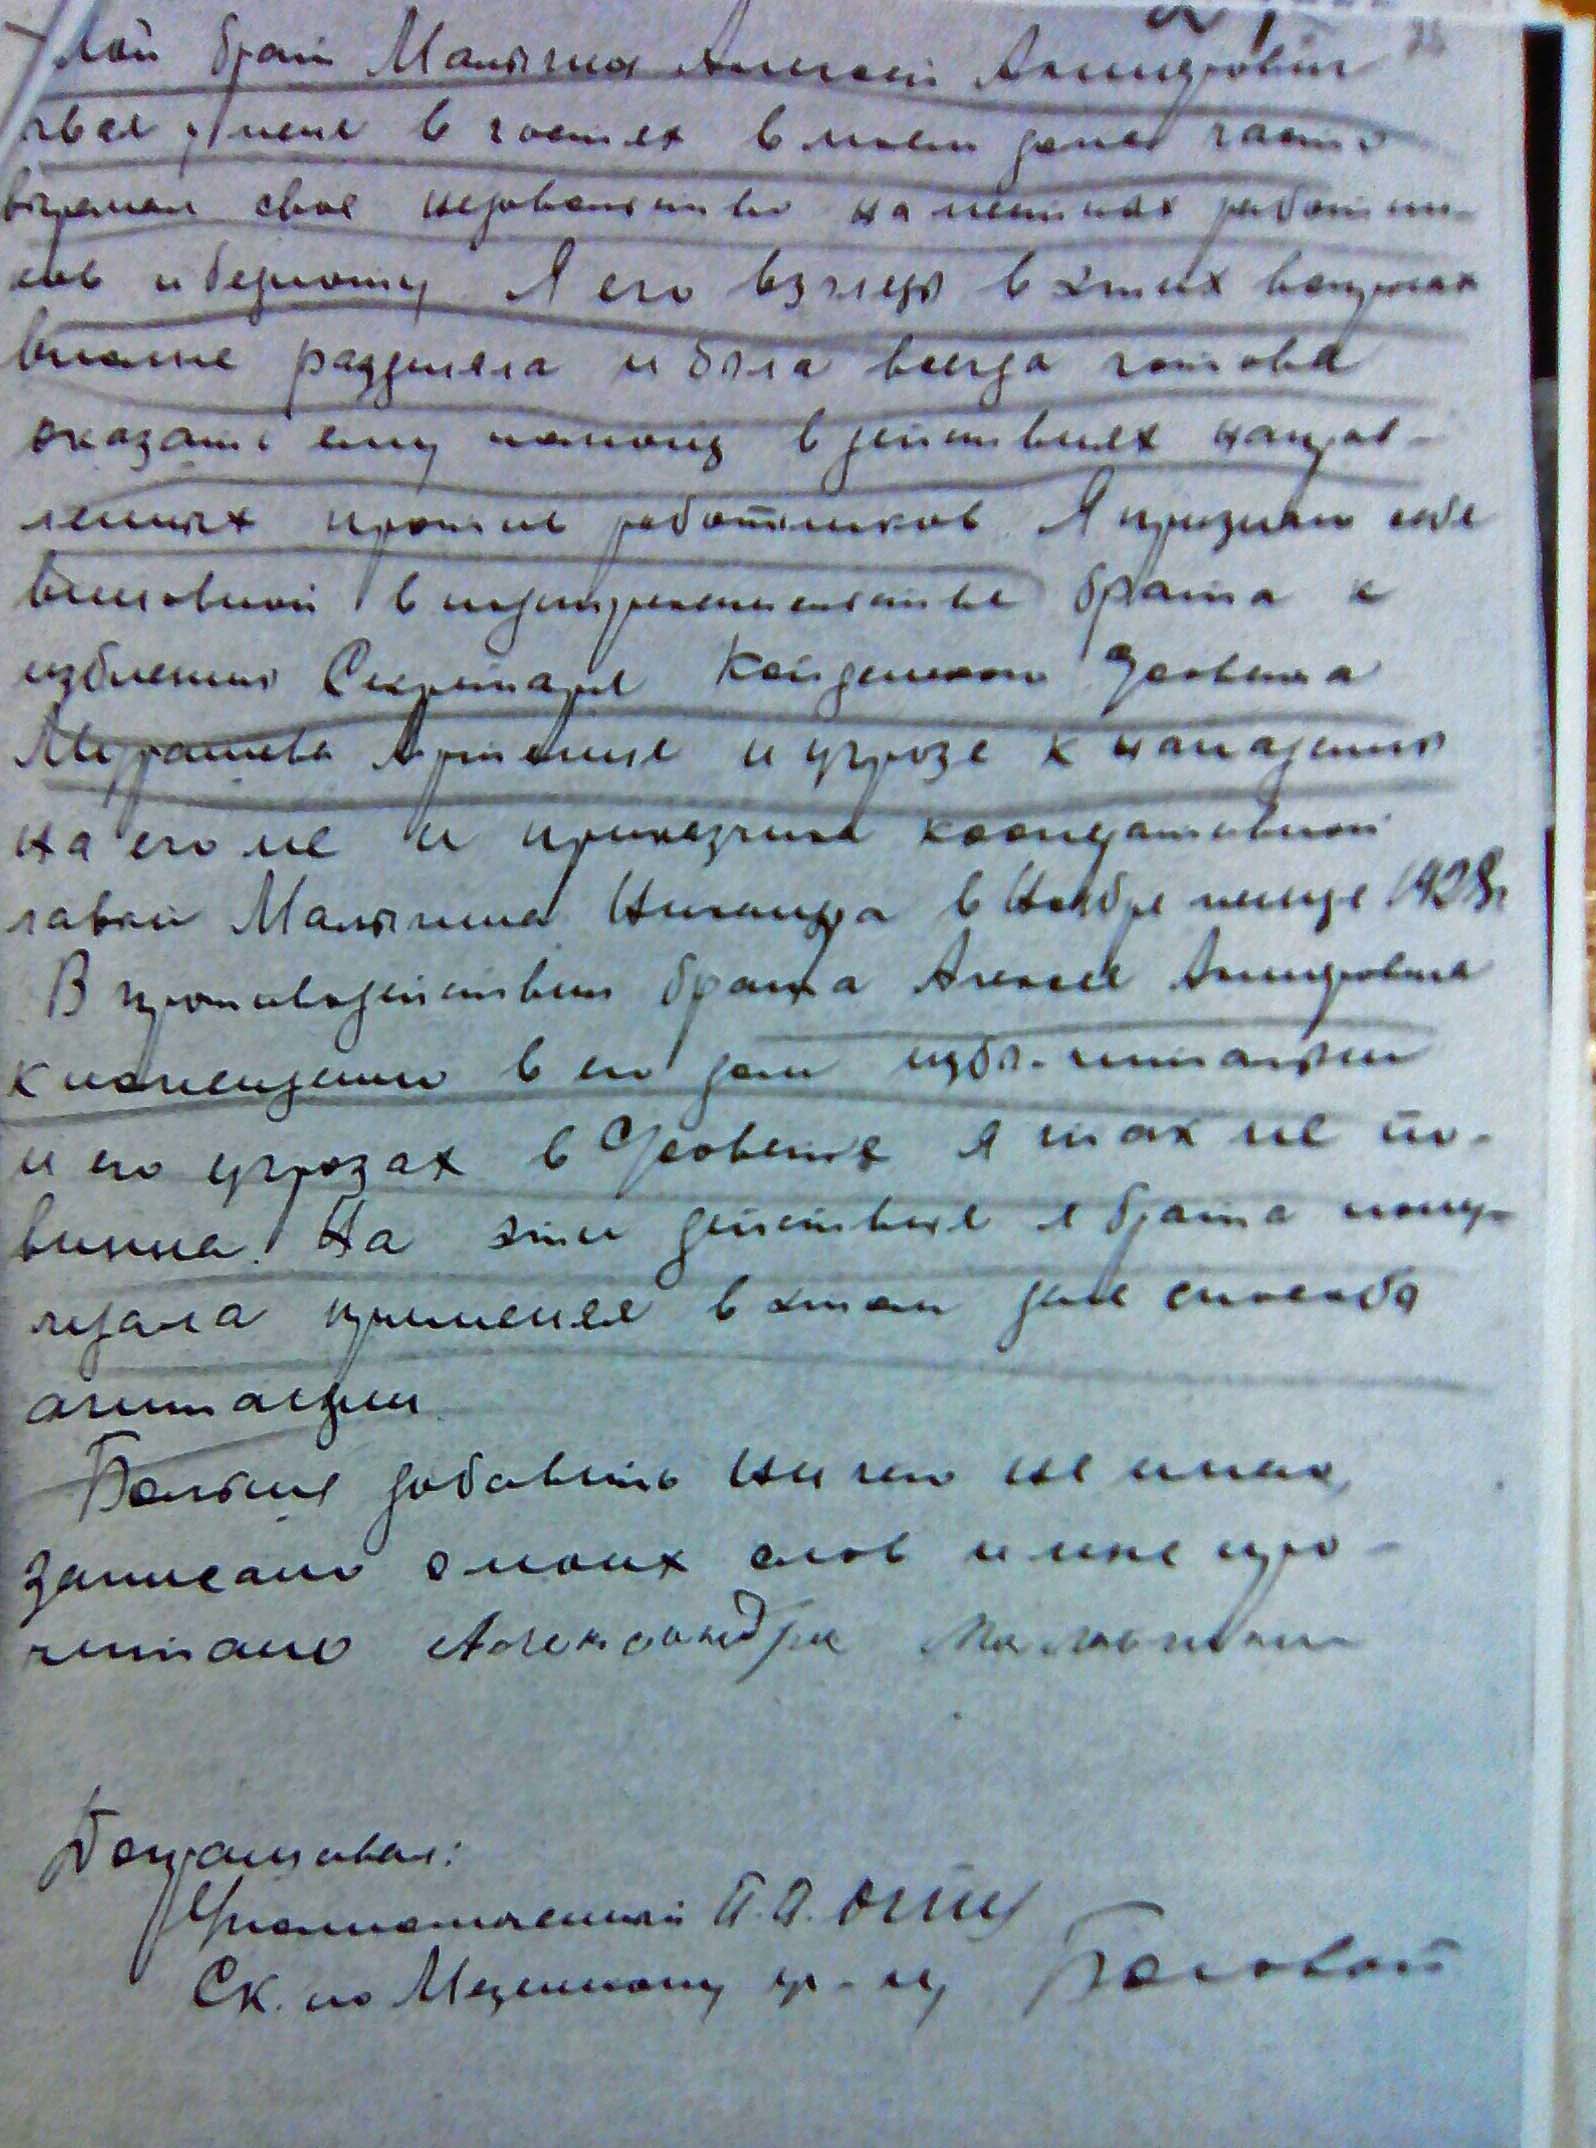 Мой брат Малыгин Алексей Акиндинович
бывая у меня в гостях в моем доме часто
выражал свое недовольство на местных работни-
ков и бедноту. Я его взгляд в этих вопросах
вполне разделяла и была всегда готова
оказать ему помощь в действиях направ-
ленных против работников. Я признаю себя
виновной в подстрекательстве брата к
избиению Секретаря Койденского с/совета
Мурашева Артемия и угрозе к нападению
на его же и приказчика кооперативной
лавки Малыгина Никандра в Ноябре месяце 1928 г
В противодействии брата Алексея Акиндиновича
к помещению в его дом избы-читальни
и его угрозах в с/совете я так же по-
винна. На эти действия я брата пону-
ждала применяя в этом деле способ
агитации
Больше добавить ничего не имею,
записано с моих слов и мне про-
читано Александра Малыгина
Допрашивал:
Уполномоченный П.П. ОГПУ
СК. по Мезенскому р-ну